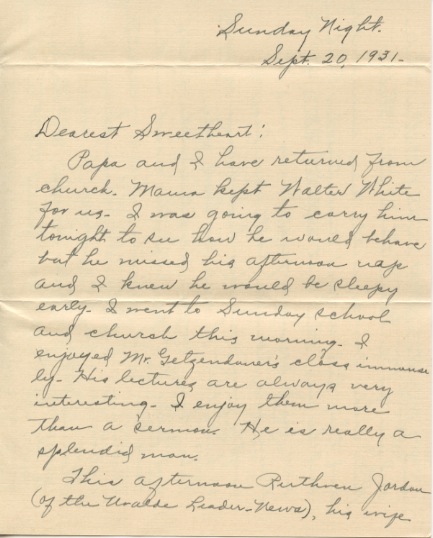 Sunday Night.
Sept. 20, 1931.
Dearest Sweetheart:
Papa and I have returned from
church. Mama kept Walter White
for us. I was going to carry him
tonight to see how he would behave
but he missed his afternoon nap
and I knew he would be sleepy
early. I went to Sunday school
and church this morning. I
enjoyed Mr. Getzendaner's class immense
ly. His lectures are always very
interesting. I enjoy them more
than a sermon. He is really a
splendid man.
This afternoon Ruthven Jordan
(of the Uvalde Leader-News), his wife